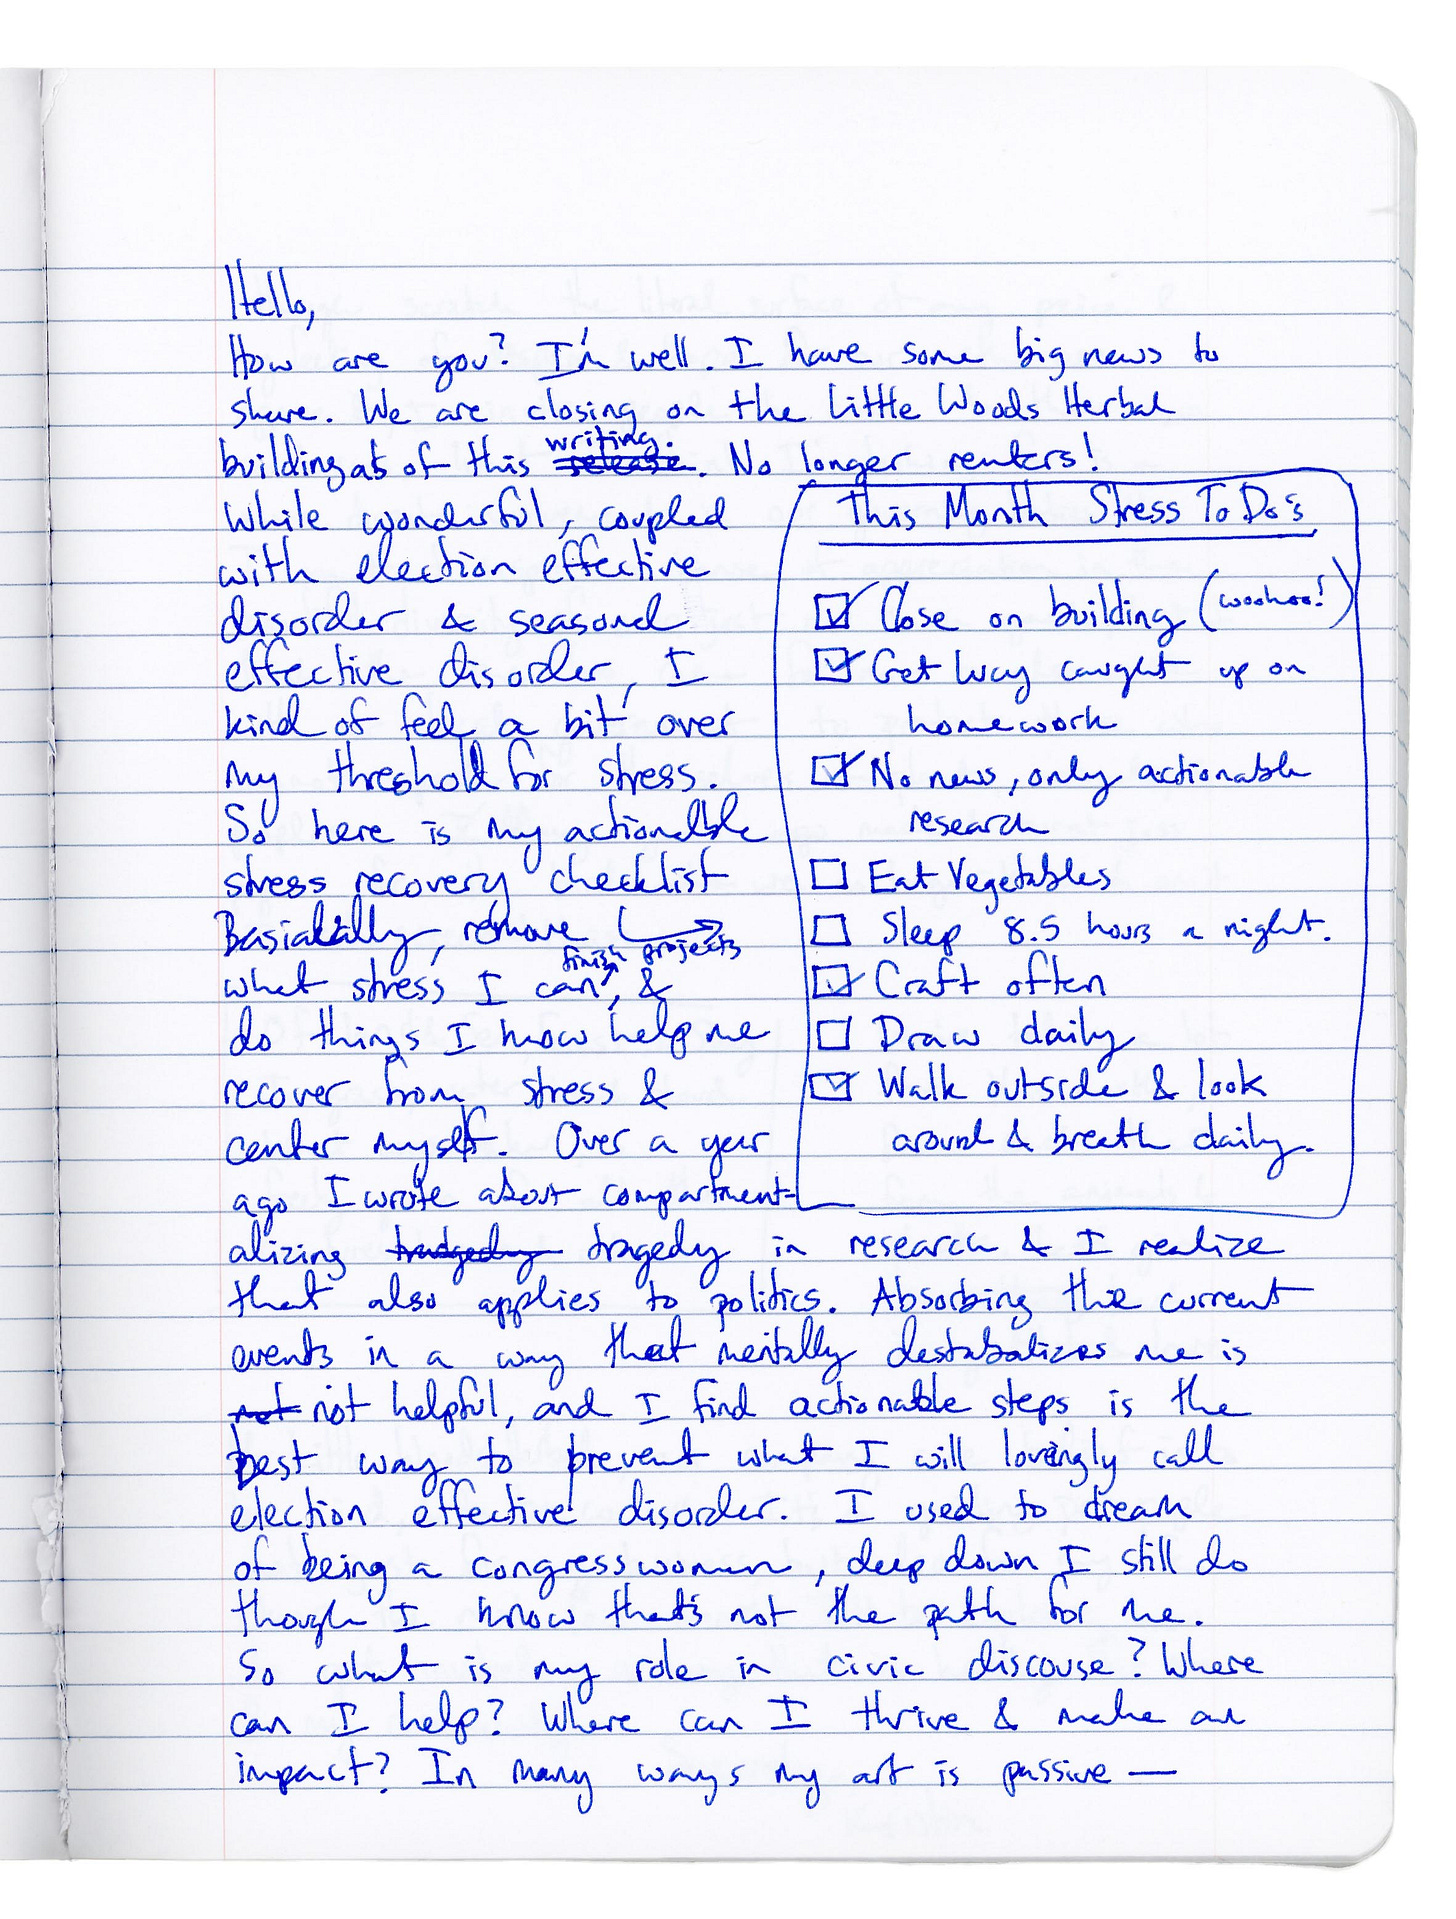 Hello,
How are you? I'm well. I have some big news to
share. We are closing on the Little Woods Herbal
building as of this release writing. No longer renters!
While wonderful, coupled
with election effective
disorder & seasonal
effective disorder, I
kind of feel a bit over
my threshold for stress.
So here is my actionable
stress recovery checklist
Basically, remove
what stress I can, finish projects &
do things I know help me
recover from stress &
center myself. Over a year
ago I wrote about compartment-
This Month Stress To Do's
Close on building (woohoo!)
Get Way caught up on
homework
No news, only actionable
research
Eat Vegetables
Sleep 8.5 hours a night.
Craft often
Draw daily
Walk outside & look
around & breath daily.
alizing tradgedy tragedy in research & I realize
that also applies to politics. Absorbing the current
events in a way that mentally destabalizes me is
not not helpful, and I find actionable steps is the
best way to prevent what I will lovingly call
election effective disorder. I used to dream
of being a congresswoman, deep down I still do
though I know that's not the path for me.
So what is my role in civic discouse? Where
can I help? Where can I thrive & make an
impact? In many ways my art is passive —